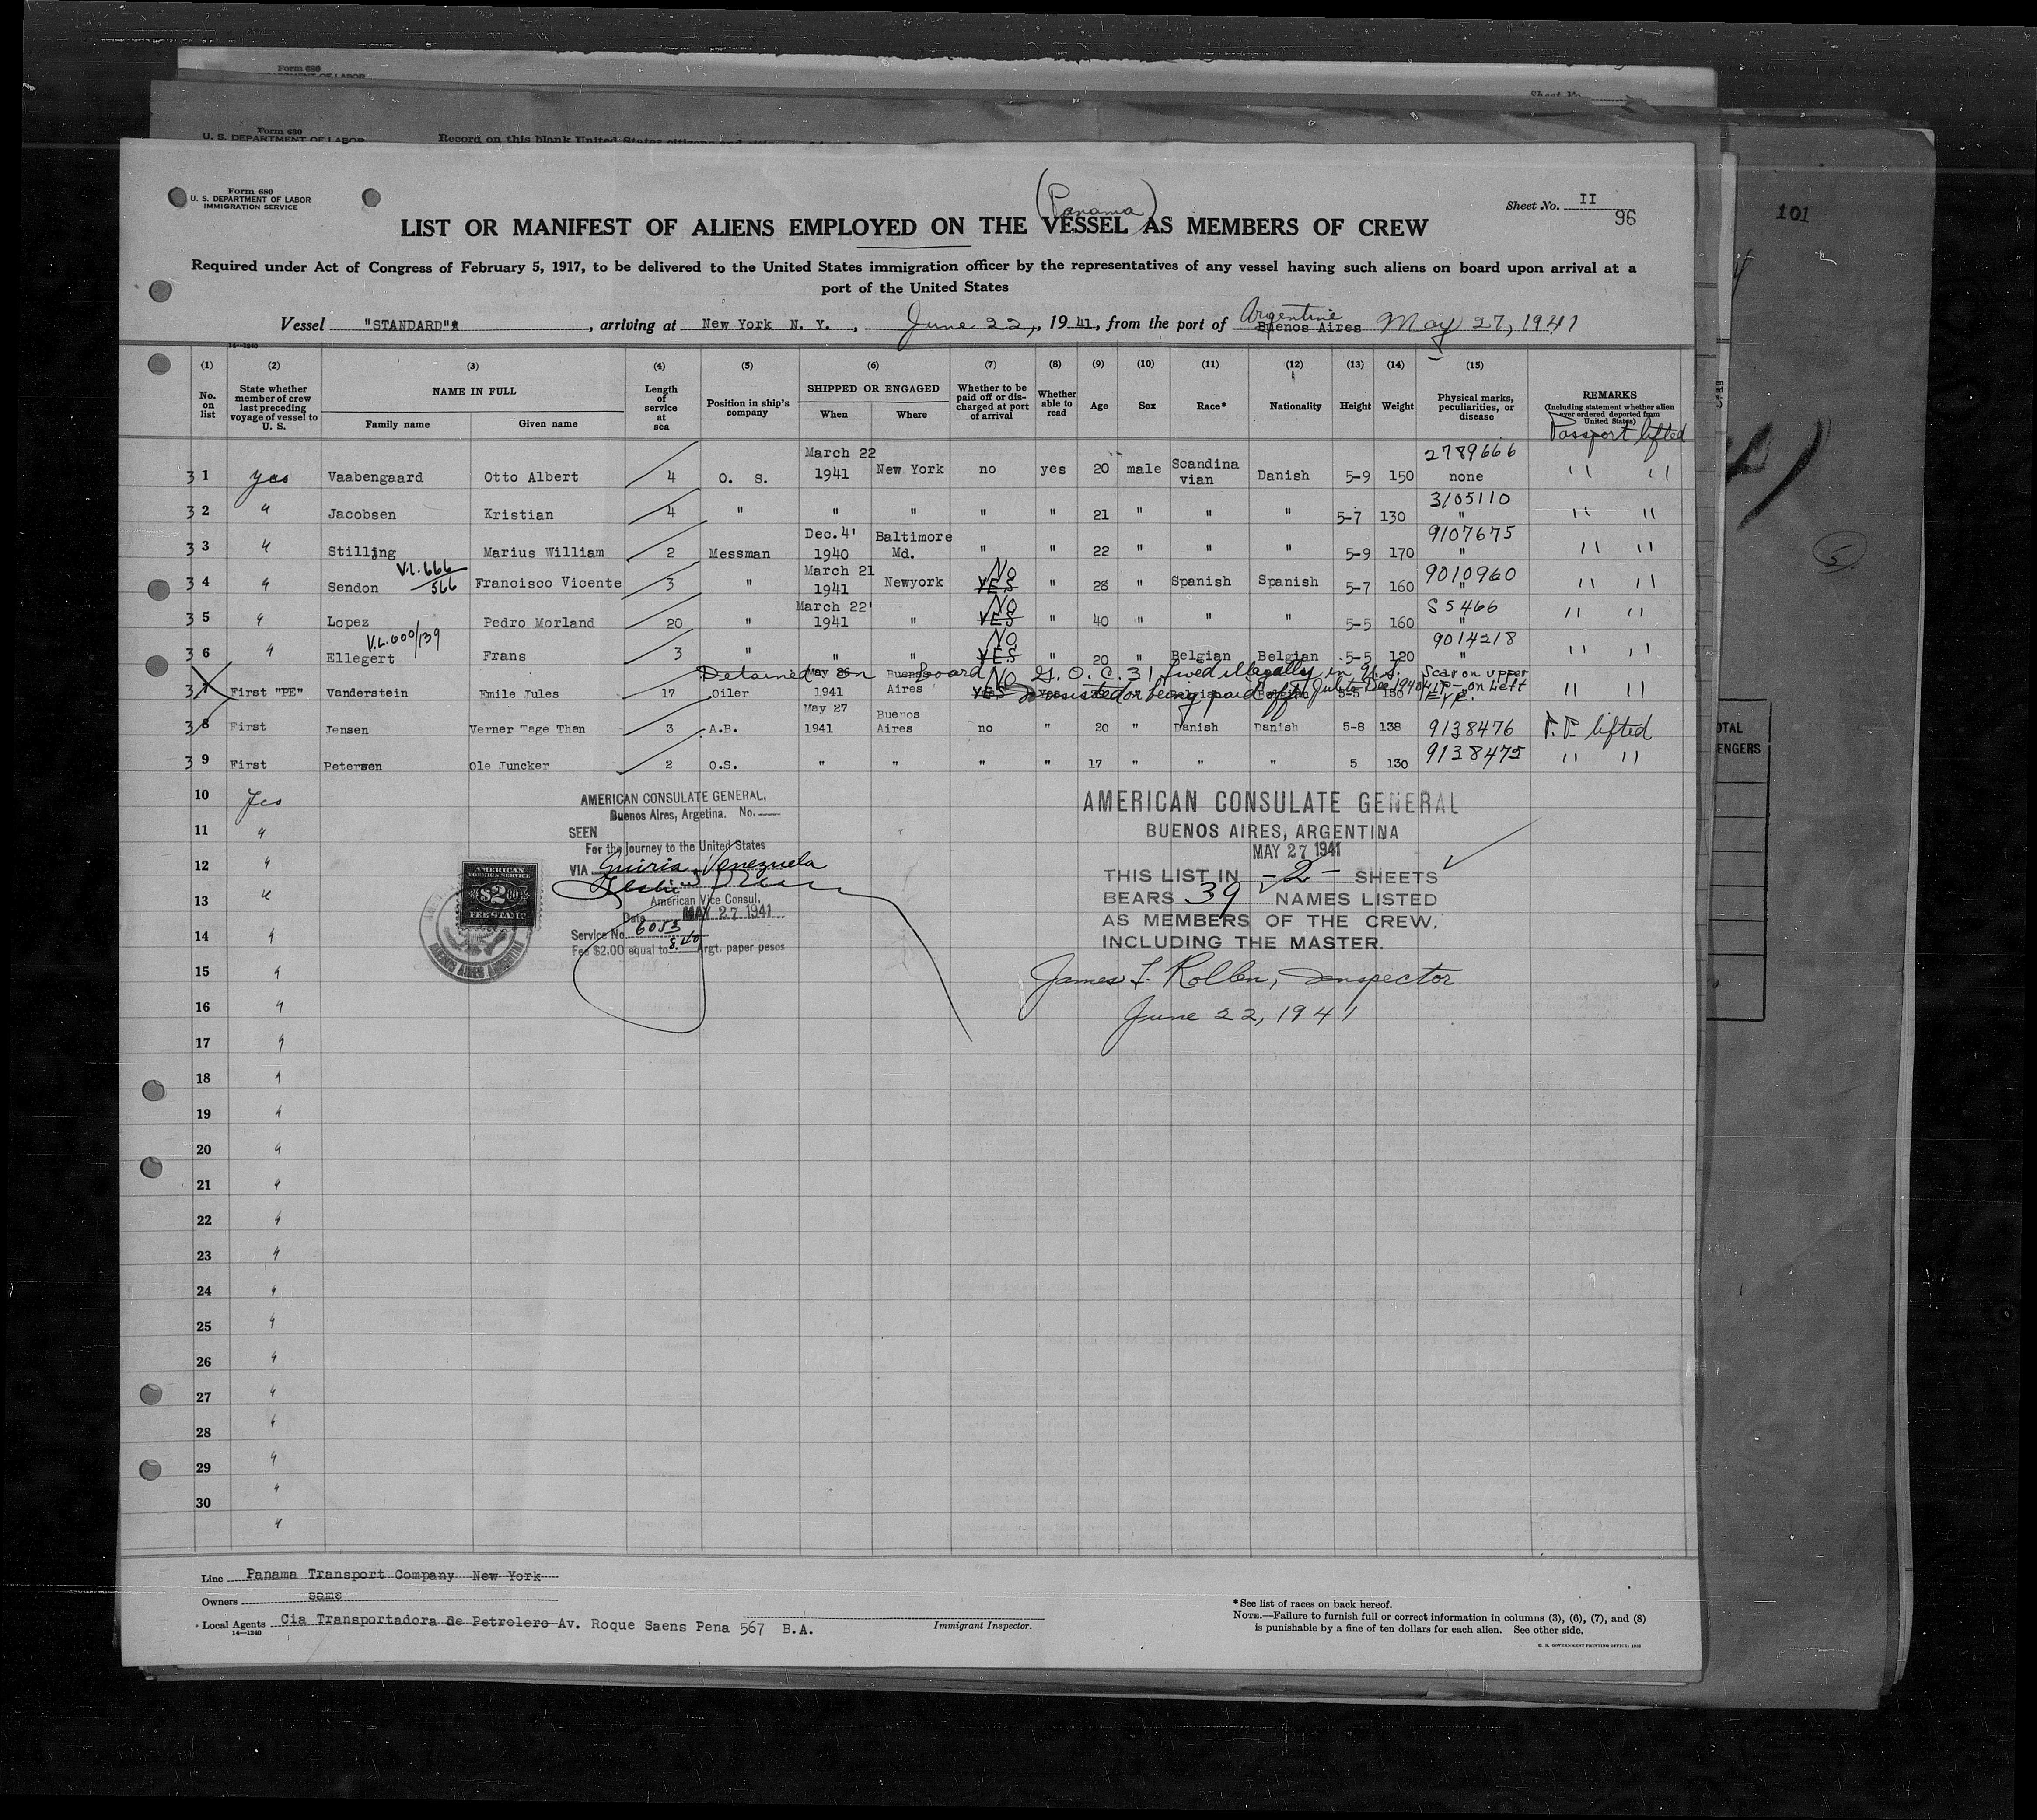 Form 680
Sheet No.
Form 630
U. S. DEPARTMENT OF LABOR
Record on this blank United States citizens and
Form 680
U. S. DEPARTMENT OF LABOR
IMMIGRATION SERVICE
(Panama)
Sheet No. II
96
101
LIST OR MANIFEST OF ALIENS EMPLOYED ON THE VESSEL AS MEMBERS OF CREW
Required under Act of Congress of February 5, 1917, to be delivered to the United States immigration officer by the representatives of any vessel having such aliens on board upon arrival at a
port of the United States
Vessel "STANDARD", arriving at New York N. Y., June 22, 1941, from the port of Argentine Buenos Aires May 27, 1941
14-1240
(1) (2) (3) (4) (5) (6) (7) (8) (9) (10) (11) (12) (13) (14) (15)
No. on list
State whether member of crew last preceding voyage of vessel to U. S.
NAME IN FULL
Family name Given name
Length of service at sea
Position in ship's company
SHIPPED OR ENGAGED
When Where
Whether to be paid off or discharged at port of arrival
Whether able to read
Age Sex Race* Nationality Height Weight
Physical marks, peculiarities, or disease
REMARKS
(Including statement whether alien ever ordered deported from United States)
Passport lifted
3 1 yes Vaabengaard Otto Albert 4 O. S. March 22 1941 New York no yes 20 male Scandina vian Danish 5-9 150 2789666 none " "
3 2 " Jacobsen Kristian 4 " " " " " 21 " " " 5-7 130 3105110 " " "
3 3 " Stilling Marius William 2 Messman Dec. 4' 1940 Baltimore Md. " " 22 " " " 5-9 170 9107675 " " "
3 4 " Sendon V.L. 666/566 Francisco Vicente 3 " March 21 1941 Newyork No YES " 28 " Spanish Spanish 5-7 160 9010960 " " "
3 5 " Lopez Pedro Morland 20 " March 22' 1941 " No YES " 40 " " " 5-5 160 S5466 " " "
3 6 " Ellegert V.L. 600/139 Frans 3 " " " No YES " 20 " Belgian Belgian 5-5 120 9014218 " " "
Detained on board G. O. C. 31, lived illegally in U. S.
3 7 First "PE" Vanderstein Emile Jules 17 Oiler May 1941 Buenos Aires No YES 5-8 150 Scar on upper Lip - on Left Eye. " "
insisted on being paid off July to Dec. 1940
3 8 First Jensen Verner Tage Than 3 A.B. May 27 1941 Buenos Aires no " 20 " Danish Danish 5-8 138 9138476 P. P. lifted
3 9 First Petersen Ole Juncker 2 O.S. " " " " 17 " " " 5 130 9138475 " "
10 Yes
11 "
12 "
13 "
14 "
15 "
16 "
17 "
18 "
19 "
20 "
21 "
22 "
23 "
24 "
25 "
26 "
27 "
28 "
29 "
30 "
AMERICAN CONSULATE GENERAL,
Buenos Aires, Argetina. No.
SEEN
For the journey to the United States
VIA Guiria, Venezuela
American Vice Consul,
Date MAY 27 1941
Service No. 6053
Fee $2.00 equal to 8.40 Argt. paper pesos
AMERICAN
FOREIGN SERVICE
$2.00
FEE STAMP
BUENOS AIRES ARGENTINA
AMERICAN CONSULATE GENERAL
BUENOS AIRES, ARGENTINA
MAY 27 1941
THIS LIST IN -2- SHEETS
BEARS 39 NAMES LISTED
AS MEMBERS OF THE CREW.
INCLUDING THE MASTER.
James F. Rollen, Inspector
June 22, 1941
Line Panama Transport Company New York
Owners same
Local Agents Cia Transportadora de Petrolero Av. Roque Saens Pena 567 B.A.
14-1240
Immigrant Inspector.
*See list of races on back hereof.
NOTE.—Failure to furnish full or correct information in columns (3), (6), (7), and (8)
is punishable by a fine of ten dollars for each alien. See other side.
U. S. GOVERNMENT PRINTING OFFICE